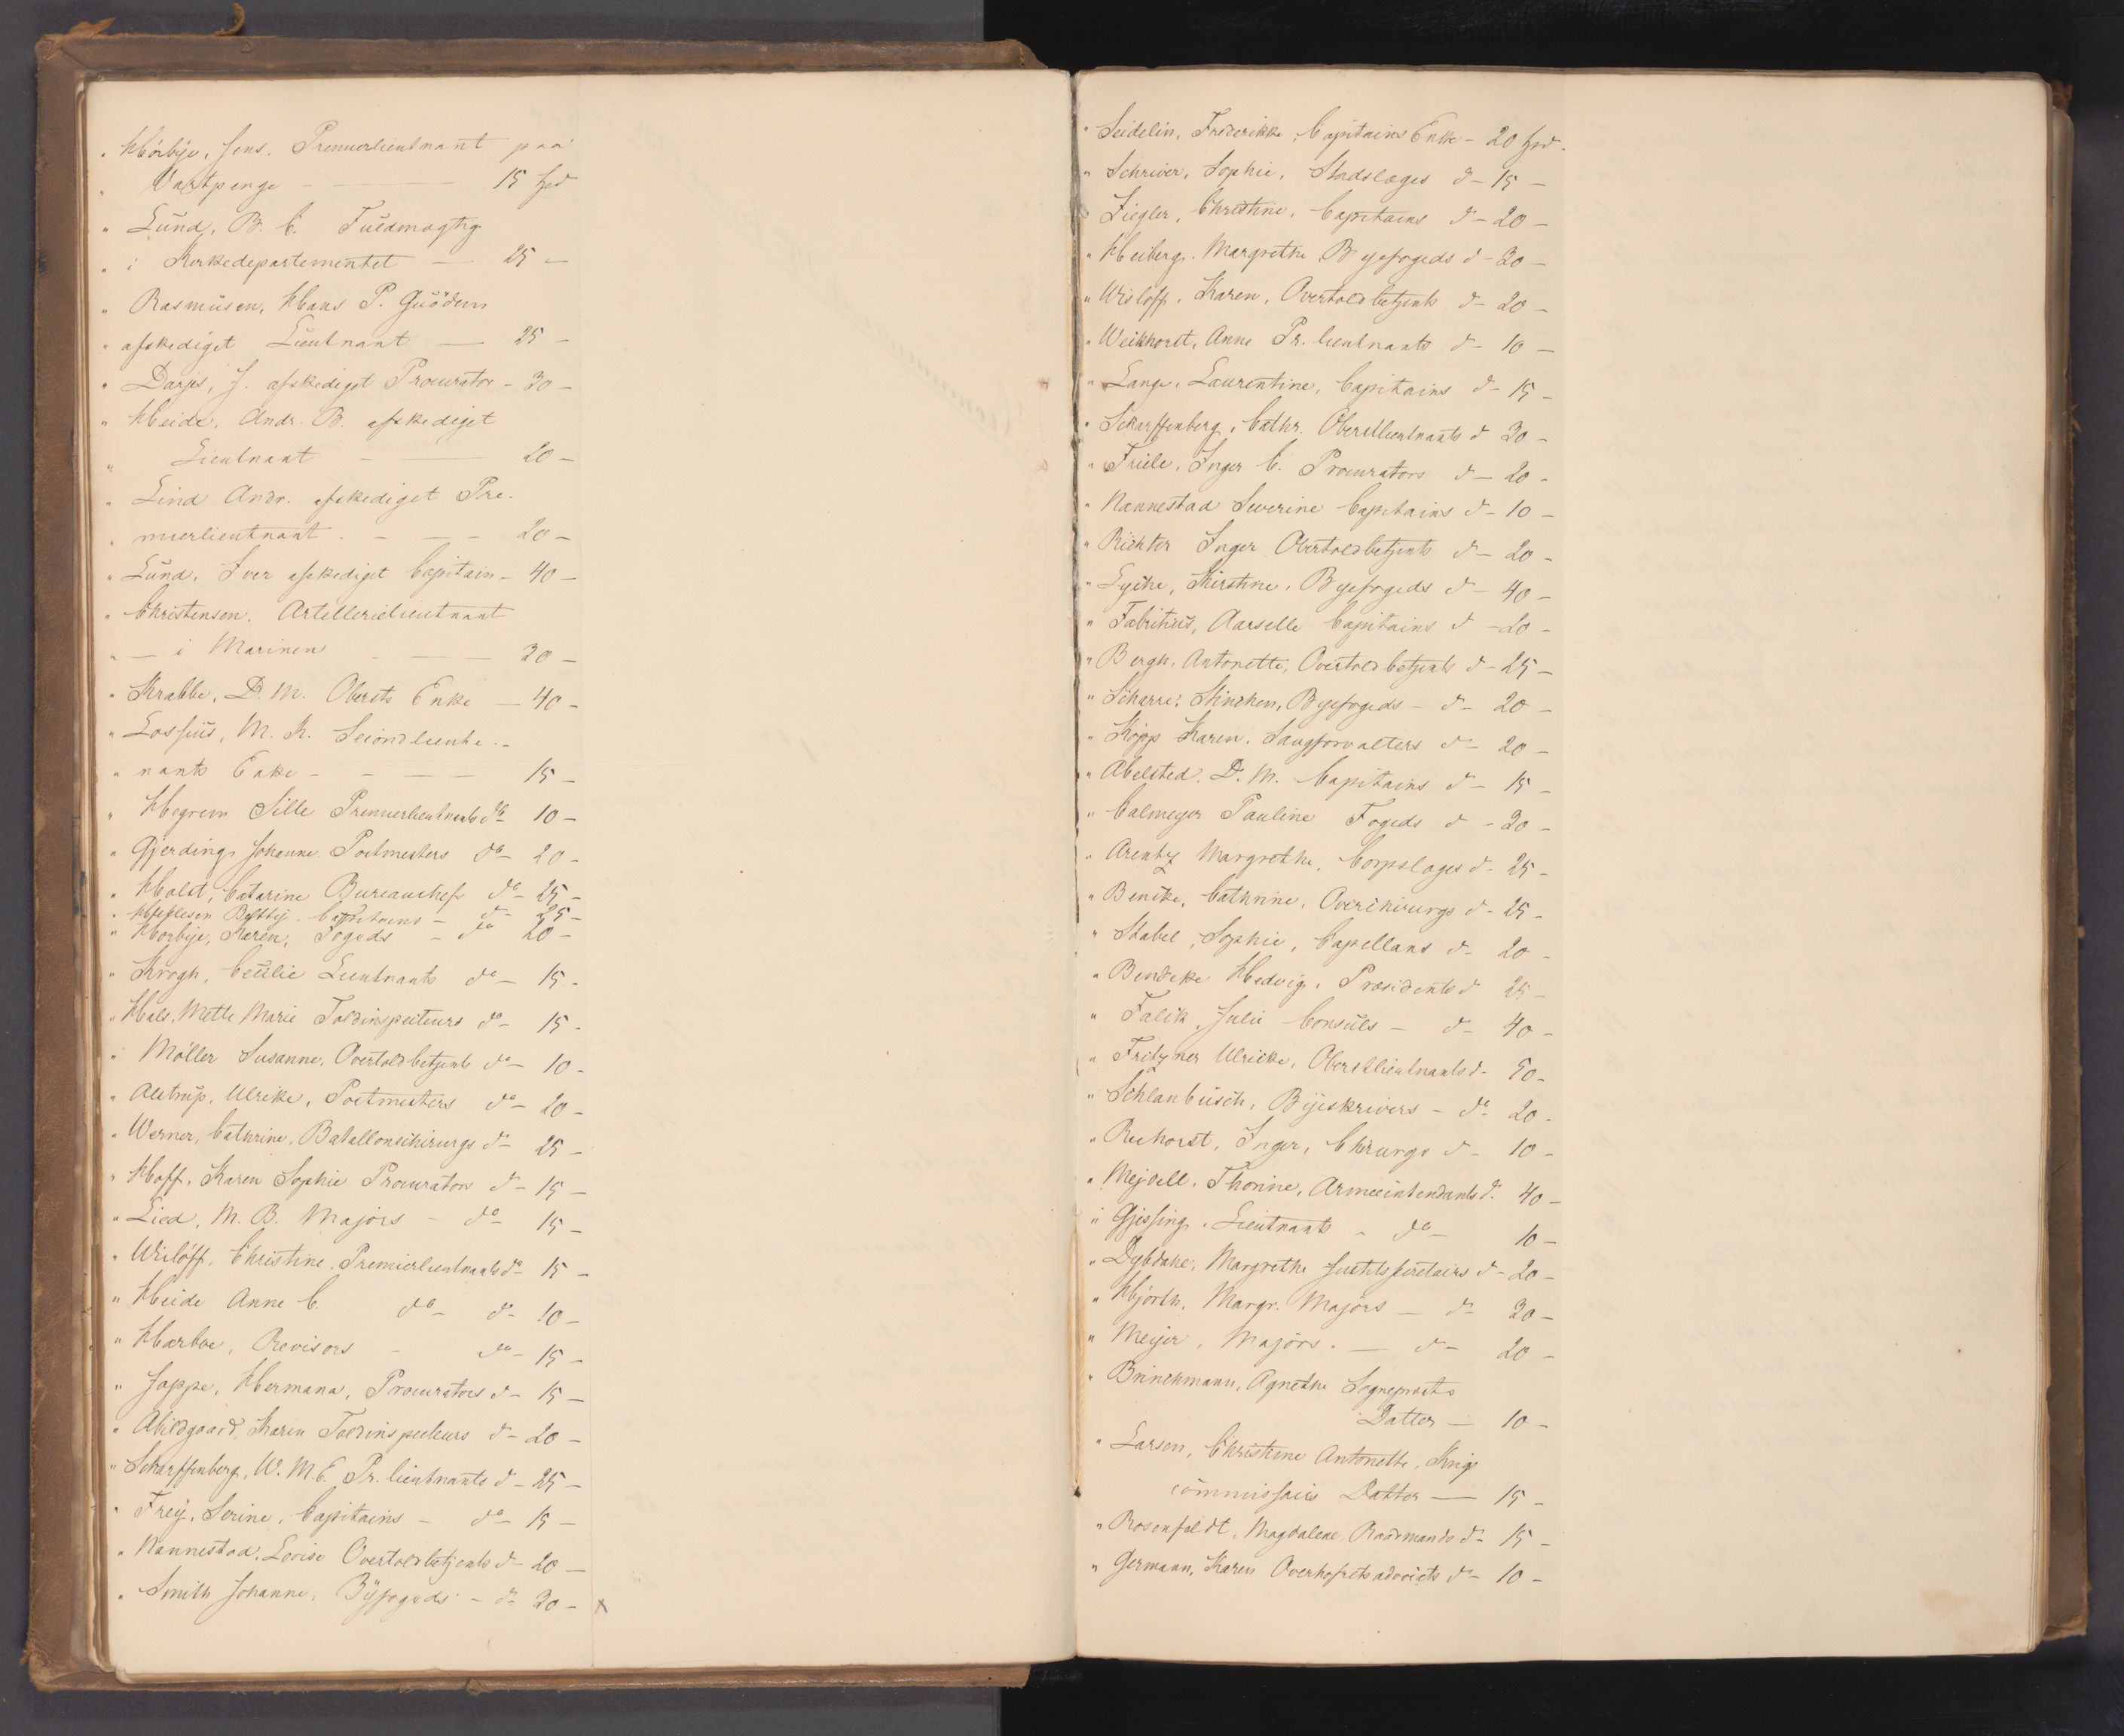 " Hörbye, Jens. Premierlieutnant paa
" Vartpenge - — 15 Spd
" Lund, B. C. Fuldmægtig
" i Kirkedepartementet — 25 —
" Rasmusen, Hans P.
" afskediget Lieutnant — 25 —
" Darjes, J. afskediget Procurator - 30 —
" Heide, Andr. B. afskediget
" Lieutnant - — 20 —
" Lind Andr. afskediget Pre-
" mierlieutnant. - — - 20 —
" Lund, Iver afskediget Capitain - 40 —
" Christensen, Artellerielieutnant
" — i Marinen - — 30 —
" Krabbe, D. M. Obersts Enke — 40 -
" Lossius, M. K. Secondlieute-
" nants Enke - - — — 15 —
" Hegrem Sille Premierlieutnants do 10 —
" Gjerding, Johanne. Postmesters do - 20 -
" Holst, Catarine Bureauchefs do - 25 -
" Betty. Capitains - do 25 -
" Horbye, Karen, Fogeds - do 20 -
" Krogh, Cecilie Lieutnants do — 15 -
" Hals, Mette Marie Toldinspecteurs do - 15 -
" Möller Susanne, Overtoldbetjents do — 10 -
" Alstrup, Ulrike, Postmesters do - 20 -
" Werner, Cathrine, Bataillonschirurgs do - 25 -
" Hoff, Karen Sophie Procurators do - 15 —
" Lied, M. B. Majors - do 15 —
" Wislöff, Christine, Premierlieutnants do - 15 -
" Heide Anne C. do - do - 10 —
" Harboe, Revisors - do - 15 —
" Jappe, Hermana, Procurators do - 15 —
" Abildgaard, Karen Toldinspecteurs do - 20 —
" Scharffenberg, W. M. E. Pr. lieutnants do - 25 —
" Frey, Serine, Capitains - do - 15 —
" Nannestad, Lovise Overtoldbetjents do - 20 —
" Smith Johanne, Byfogeds - do 30 - x
" Seidelin, Frederikke, Capitains Enke - 20 Spd.
" Schriver, Sophie, Stadslæges do - 15 —
" Ziegler, Christine, Capitains do - 20 —
" Heiberg, Margrethe Byefogeds do - 30 —
" Wisløff, Karen, Overtoldbetjents do - 20 —
" Weikhorst, Anne Pr. lieutnants do - 10 —
" Lange, Laurentine, Capitains do - 15 -
" Scharffenberg, Cathr. Oberstlieutnants do 30 -
" Friele, Inger C. Procurators do - 20 -
" Nannestad Severine Capitains do - 10 —
" Richter Inger Overtoldbetjents do - 20 -
" Lyche, Kirstine, Byefogeds do - 40 -
" Fabritius, Aarselle Capitains do - 20 -
" Bergh, Antonette, Overtoldbetjents do - 25 -
" Scharre, Stinchen, Byefogeds - do - 20 -
" Köpp Karen, Laugforvalters do - 20 -
" Abelsted, D. M. Capitains do - 15 -
" Calmeyer Pauline Fogeds do - 30 -
" Arentz Margrethe, Corpslæges do - 25 -
" Bencke, Cathrine, Overchirurgs do - 25 -
" Stabel, Sophie, Capellans do - 20 -
" Bendeke Hedvig, Præsidents do 25 -
" Falck, Julie Consuls - do - 40 -
" Fritzner Ulricke, Oberstlieutnants do - 50 -
" Schlanbusch, Byeskrivers - do 20 -
" Reehorst, Inger, Chirurgs do - 10 -
" Mejdell, Thorine, Armeeintendants do 40 —
" Gjessing, Lieutnants - do - 10 —
" Dybdahl, Margrethe Justitssecretairs do - 20 —
" Hjorth, Margr. Majors — do 30 —
" Meyer, Majors. — do - 20 -
" Brinchmann, Agnethe Sogneprests
Datter — 10 —
" Larsen, Christine Antonette, Krigs
commissairs Datter — 15 -
" Rosenfeldt, Magdalene Raadmands do - 15 -
" Germann, Karen Overhofretsadvocats do - 10 -